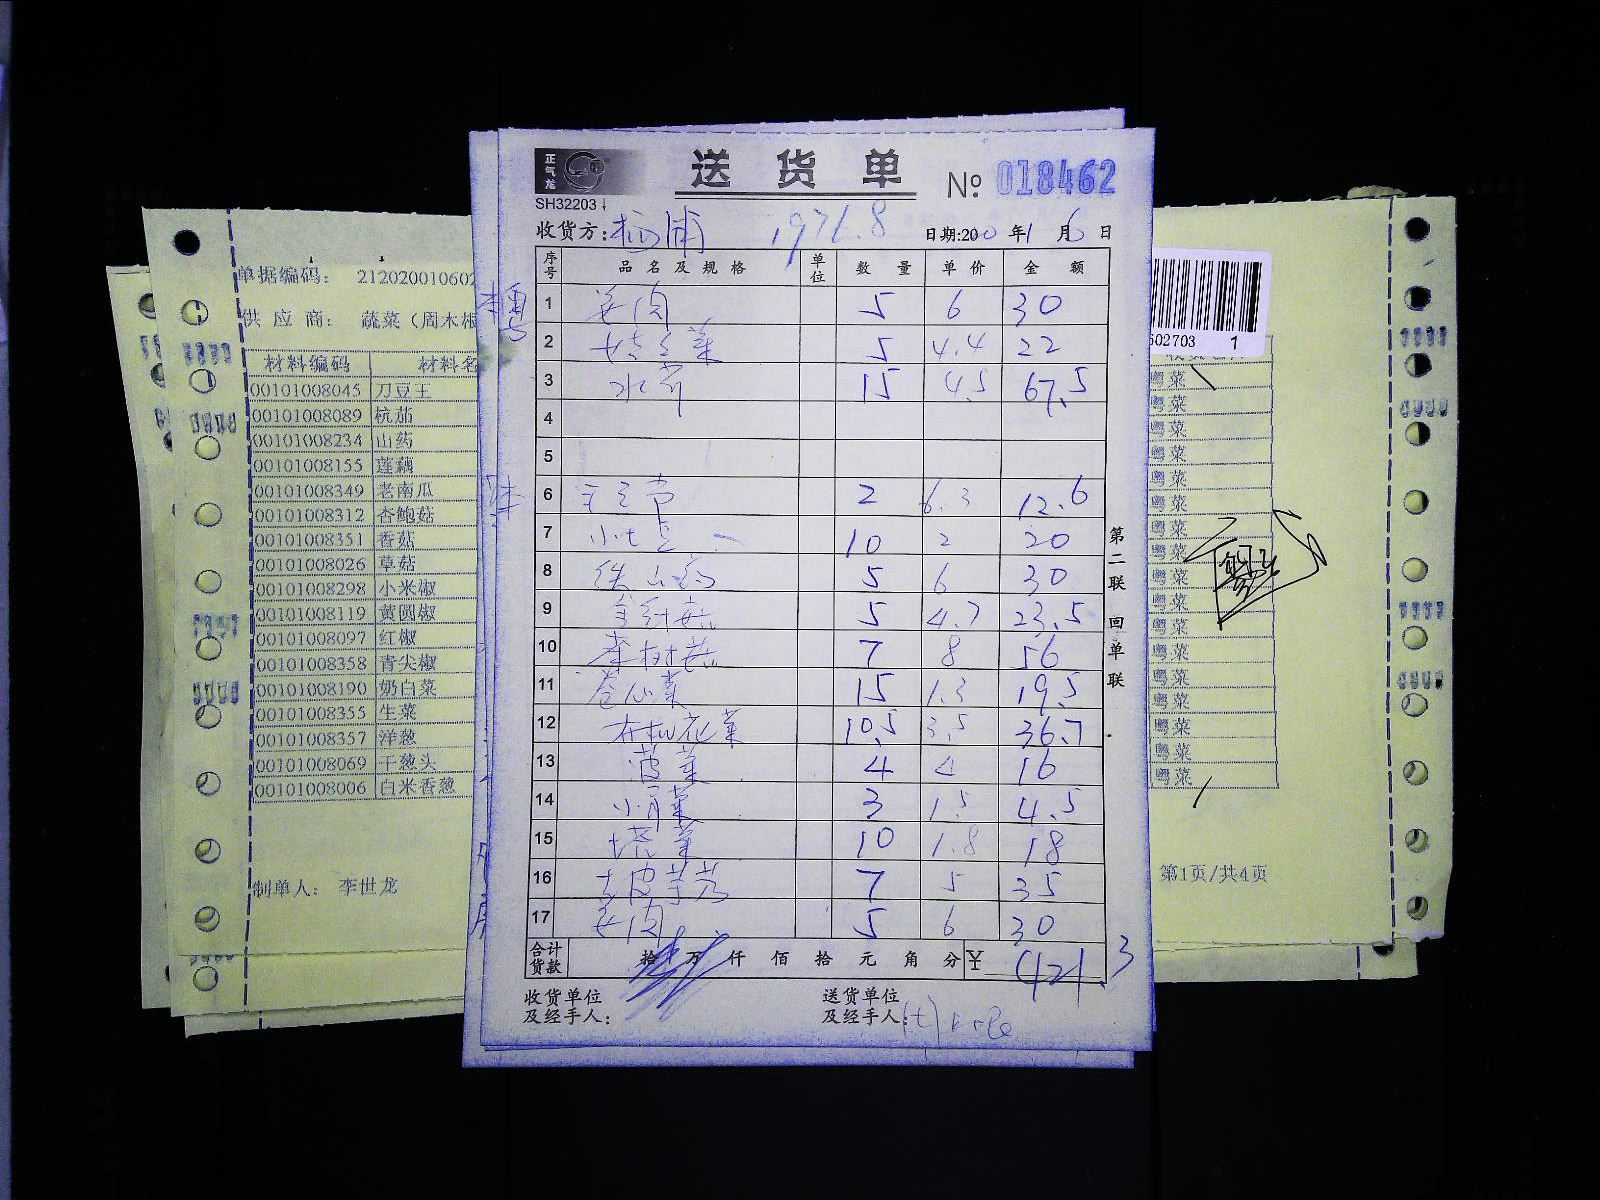 正气龙
送货单
№ 018462
SH32203
收货方: 杨浦 1971.8 日期:2020年1月6日
序号 品名及规格 单位 数量 单价 金额
1 5 6 30
2 菜 5 4.4 22
3 水芹 15 4.5 67.5
4
5
6 2 6.3 12.6
7 小土豆 10 2 20
8 铁山药 5 6 30
9 金针菇 5 4.7 23.5
10 茶树菇 7 8 56
11 卷心菜 15 1.3 19.5
12 有机花菜 10.5 3.5 36.7
13 菠菜 4 4 16
14 小青菜 3 1.5 4.5
15 塔菜 10 1.8 18
16 去皮芋艿 7 5 35
17 5 6 30
合计货款 拾 万 仟 佰 拾 元 角 分 ¥ 421.3
收货单位及经手人:
送货单位及经手人:
第二联 回单联
单据编码: 212020010602
供应商: 蔬菜(周木根
材料编码 材料名
00101008045 刀豆王
00101008089 杭茄
00101008234 山药
00101008155 莲藕
00101008349 老南瓜
00101008312 杏鲍菇
00101008351 香菇
00101008026 草菇
00101008298 小米椒
00101008119 黄圆椒
00101008097 红椒
00101008358 青尖椒
00101008190 奶白菜
00101008355 生菜
00101008357 洋葱
00101008069 干葱头
00101008006 白米香葱
制单人: 李世龙
602703 1
粤菜
粤菜
粤菜
粤菜
粤菜
粤菜
粤菜
粤菜
粤菜
粤菜
粤菜
粤菜
粤菜
粤菜
粤菜
粤菜
粤菜
第1页/共4页